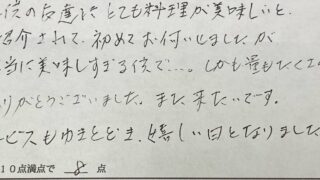 の友達にとても料理が美味しいと、
紹介されて、初めてお伺いしましたが
当に美味しすぎる位で…。しかも量もたくさ
りがとうございました。また来たいです。
ービスもゆきとどき、嬉しい日となりました
10点満点で 8 点